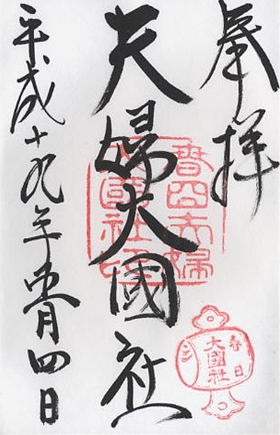 奉拝
夫婦大國社
平成十九年 月四日
春日夫婦
大國社印
春日
大國社